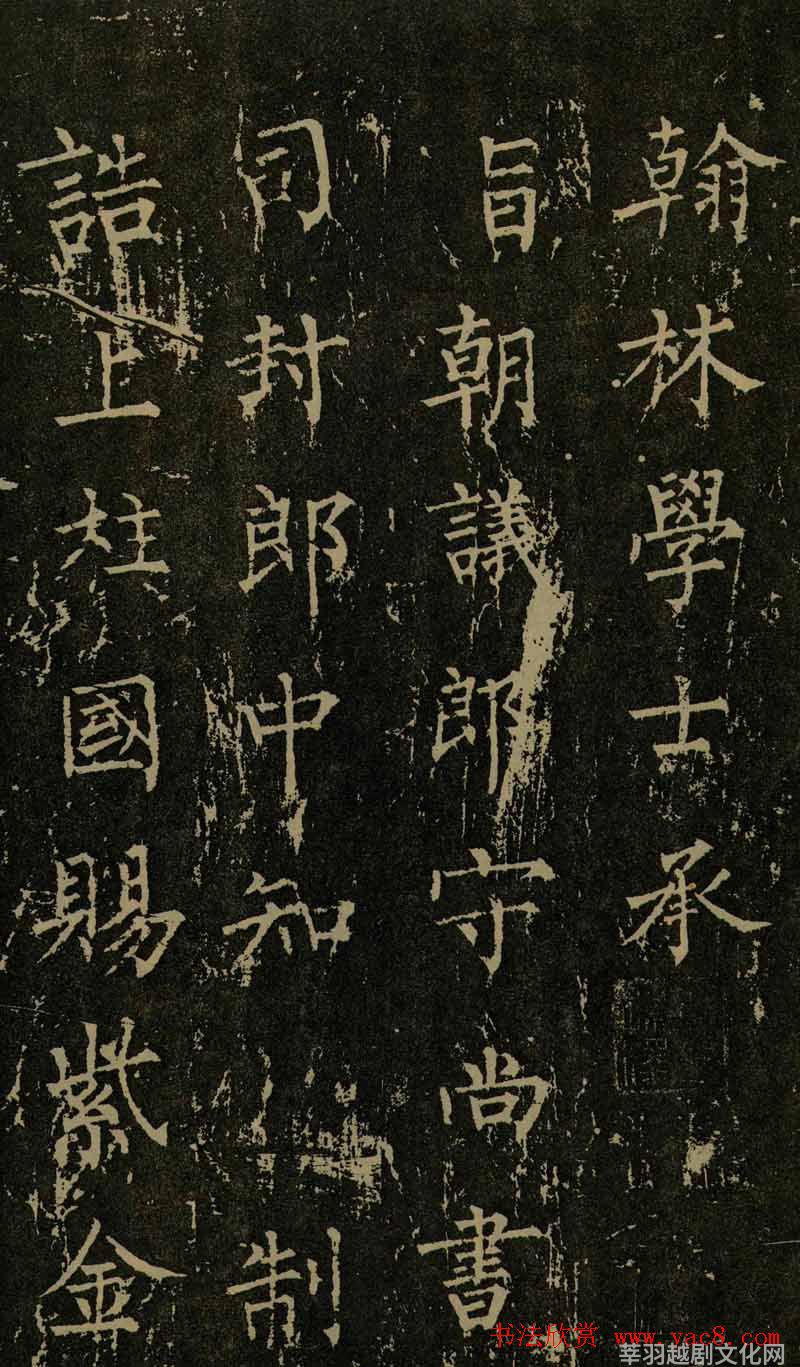 翰林學士承
旨朝議郎守尚書
司封郎中知制
誥上柱國賜紫金
书法欣赏 www.yac8.com
莘羽越剧文化网